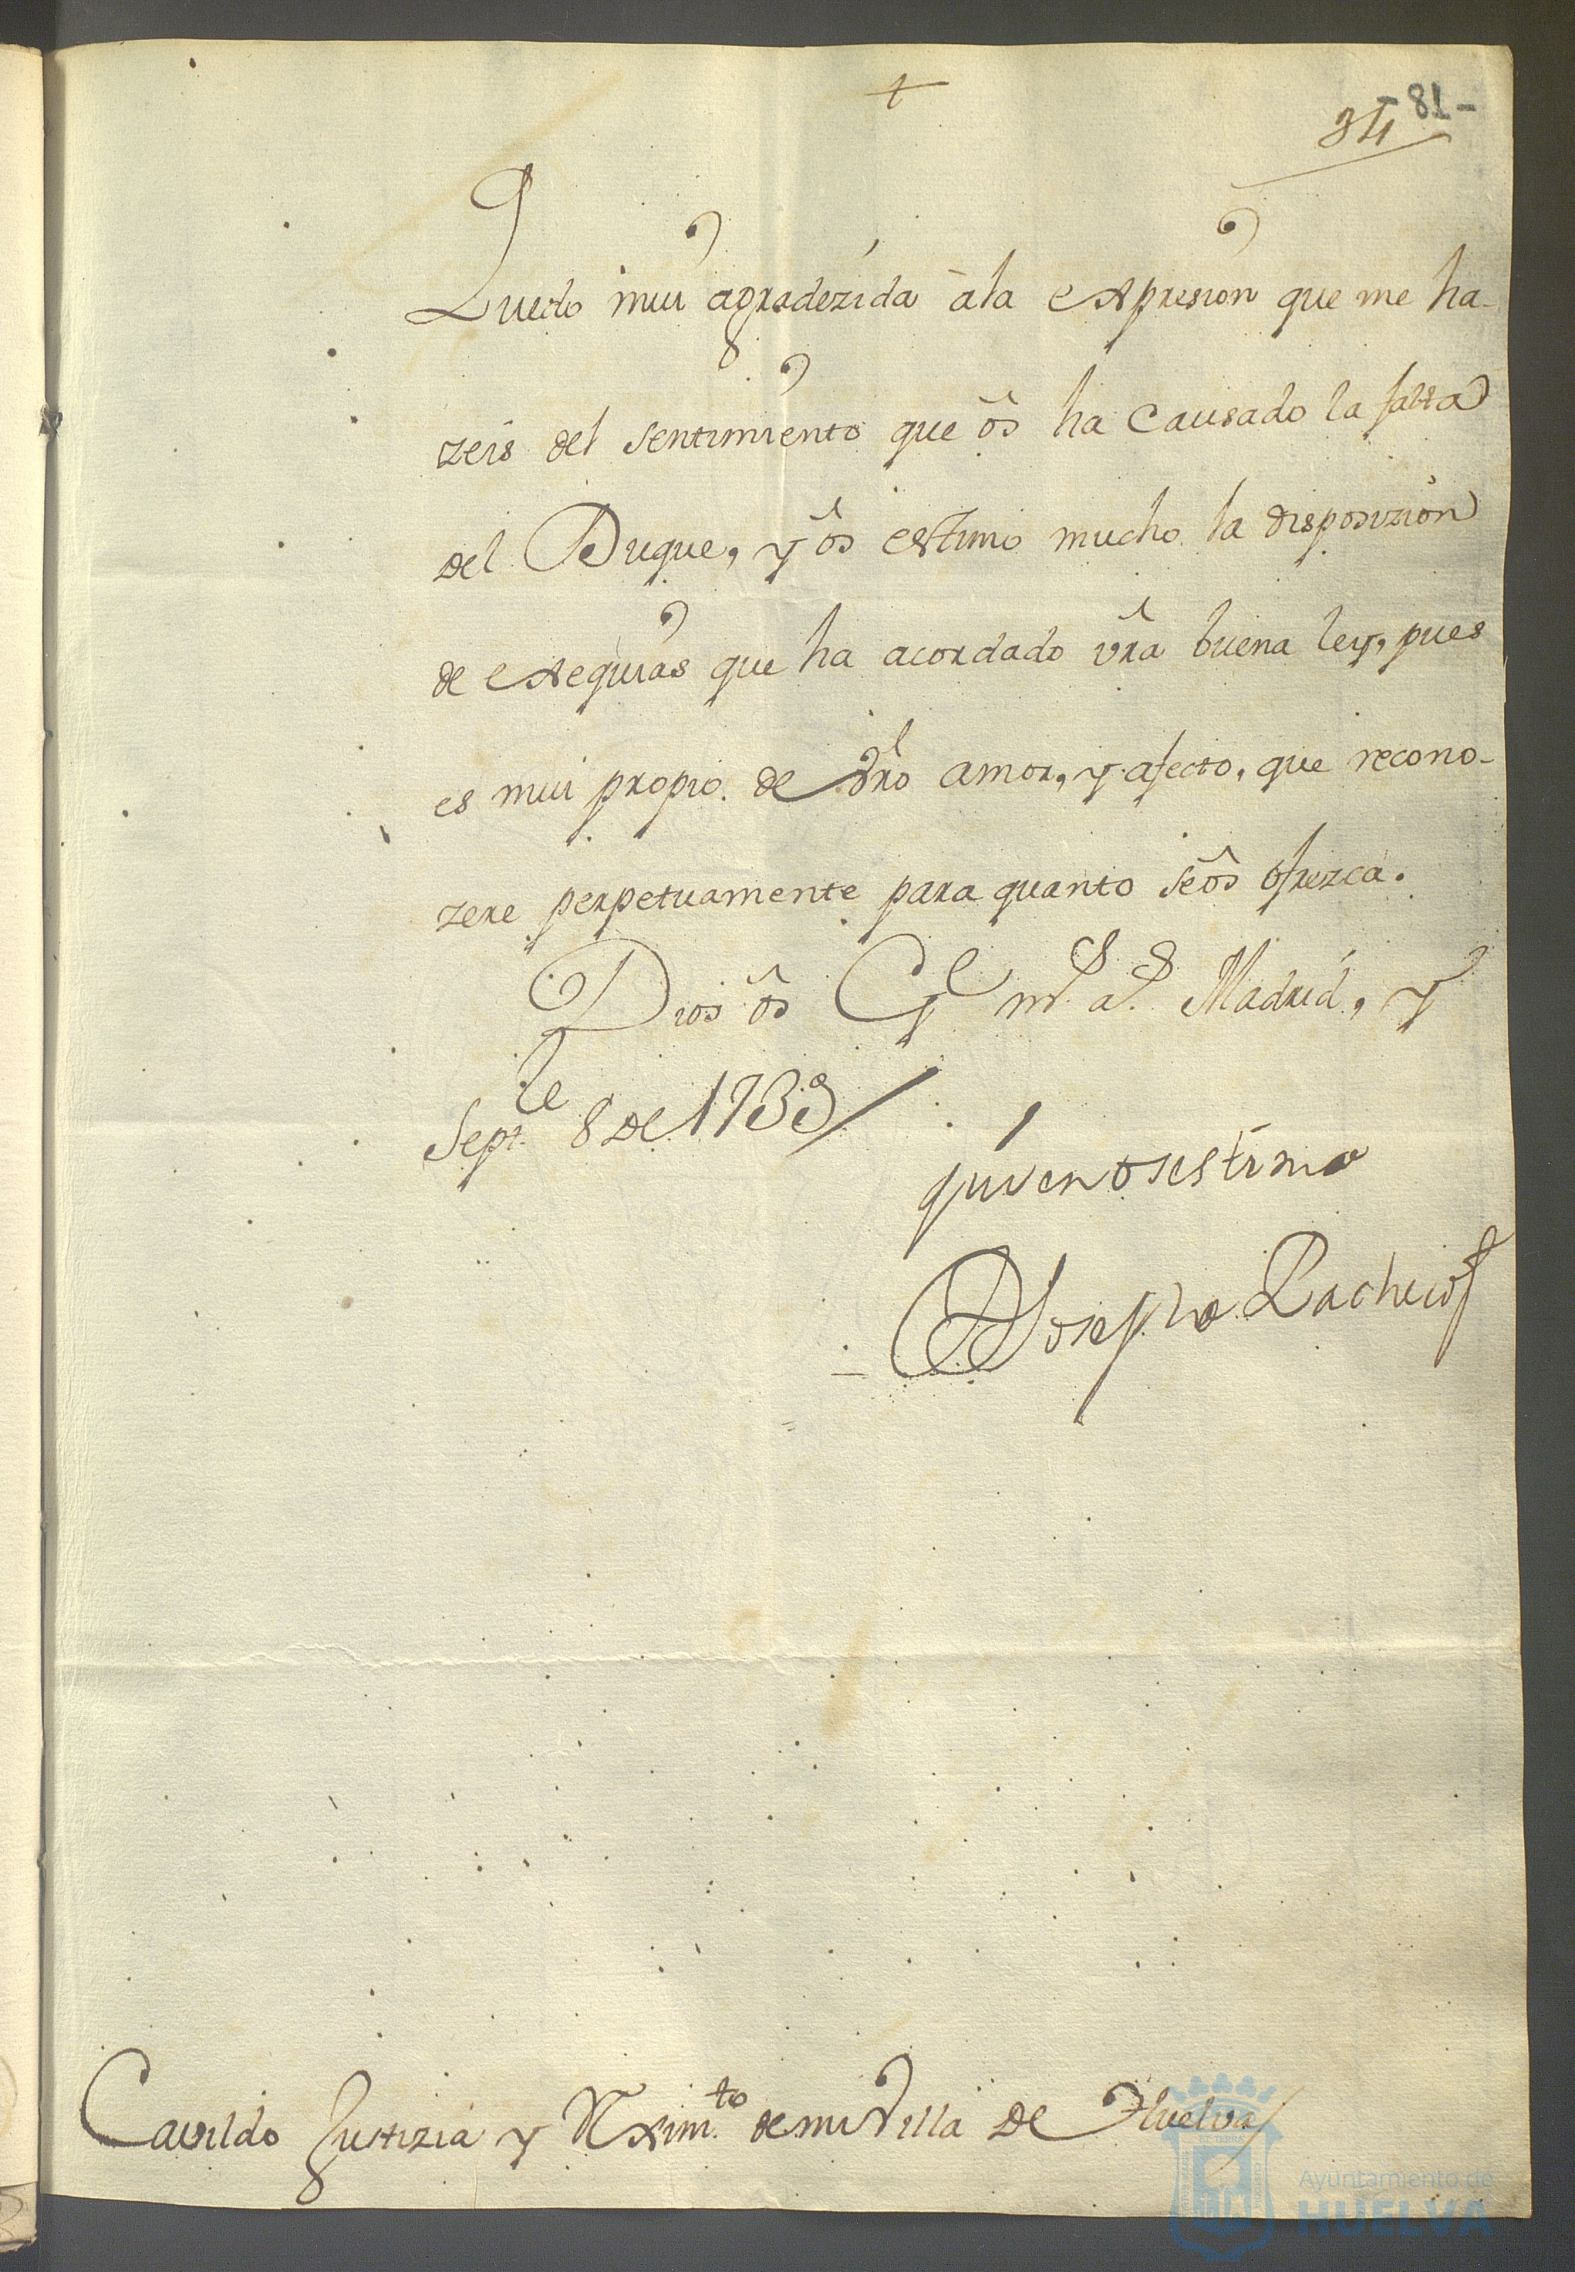 +
81-
34
Quedo mui agradezida à la expresion que me ha-
zeis del sentimiento que ôs ha causado la falta
del Duque, y ôs estimo mucho la disposizion
de exequias que ha acordado vrâ buena ley, pues
es mui propio de vrô amor, y afecto, que recono-
zere perpetuamente para quanto se ôs ofrezca.
Dios ôs Gᵉ mˢ aˢ Madrid, y
Septʳᵉ 8 de 1733
quien os estima
Josepha Pacheco
Cavildo Justizia y Rximᵗᵒ de mi Villa de Huelva
Ayuntamiento de
HUELVA